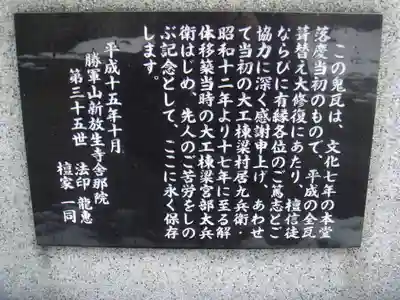 この鬼瓦は、文化七年の本堂
落慶当初のもので、平成の全瓦
葺替え大修復にあたり、檀信徒
ならびに有縁各位のご篤志とご
協力に深く感謝申上げ、あわせ
て当初の大工棟梁村居九兵衛・
昭和十二年より十七年に至る解
体移築当時の大工棟梁宮部太兵
衛はじめ、先人のご苦労をしの
ぶ記念として、ここに永く保存
します。
平成十五年十月
勝軍山新放生寺舎那院
第三十五世 法印 龍恵
檀家 一同